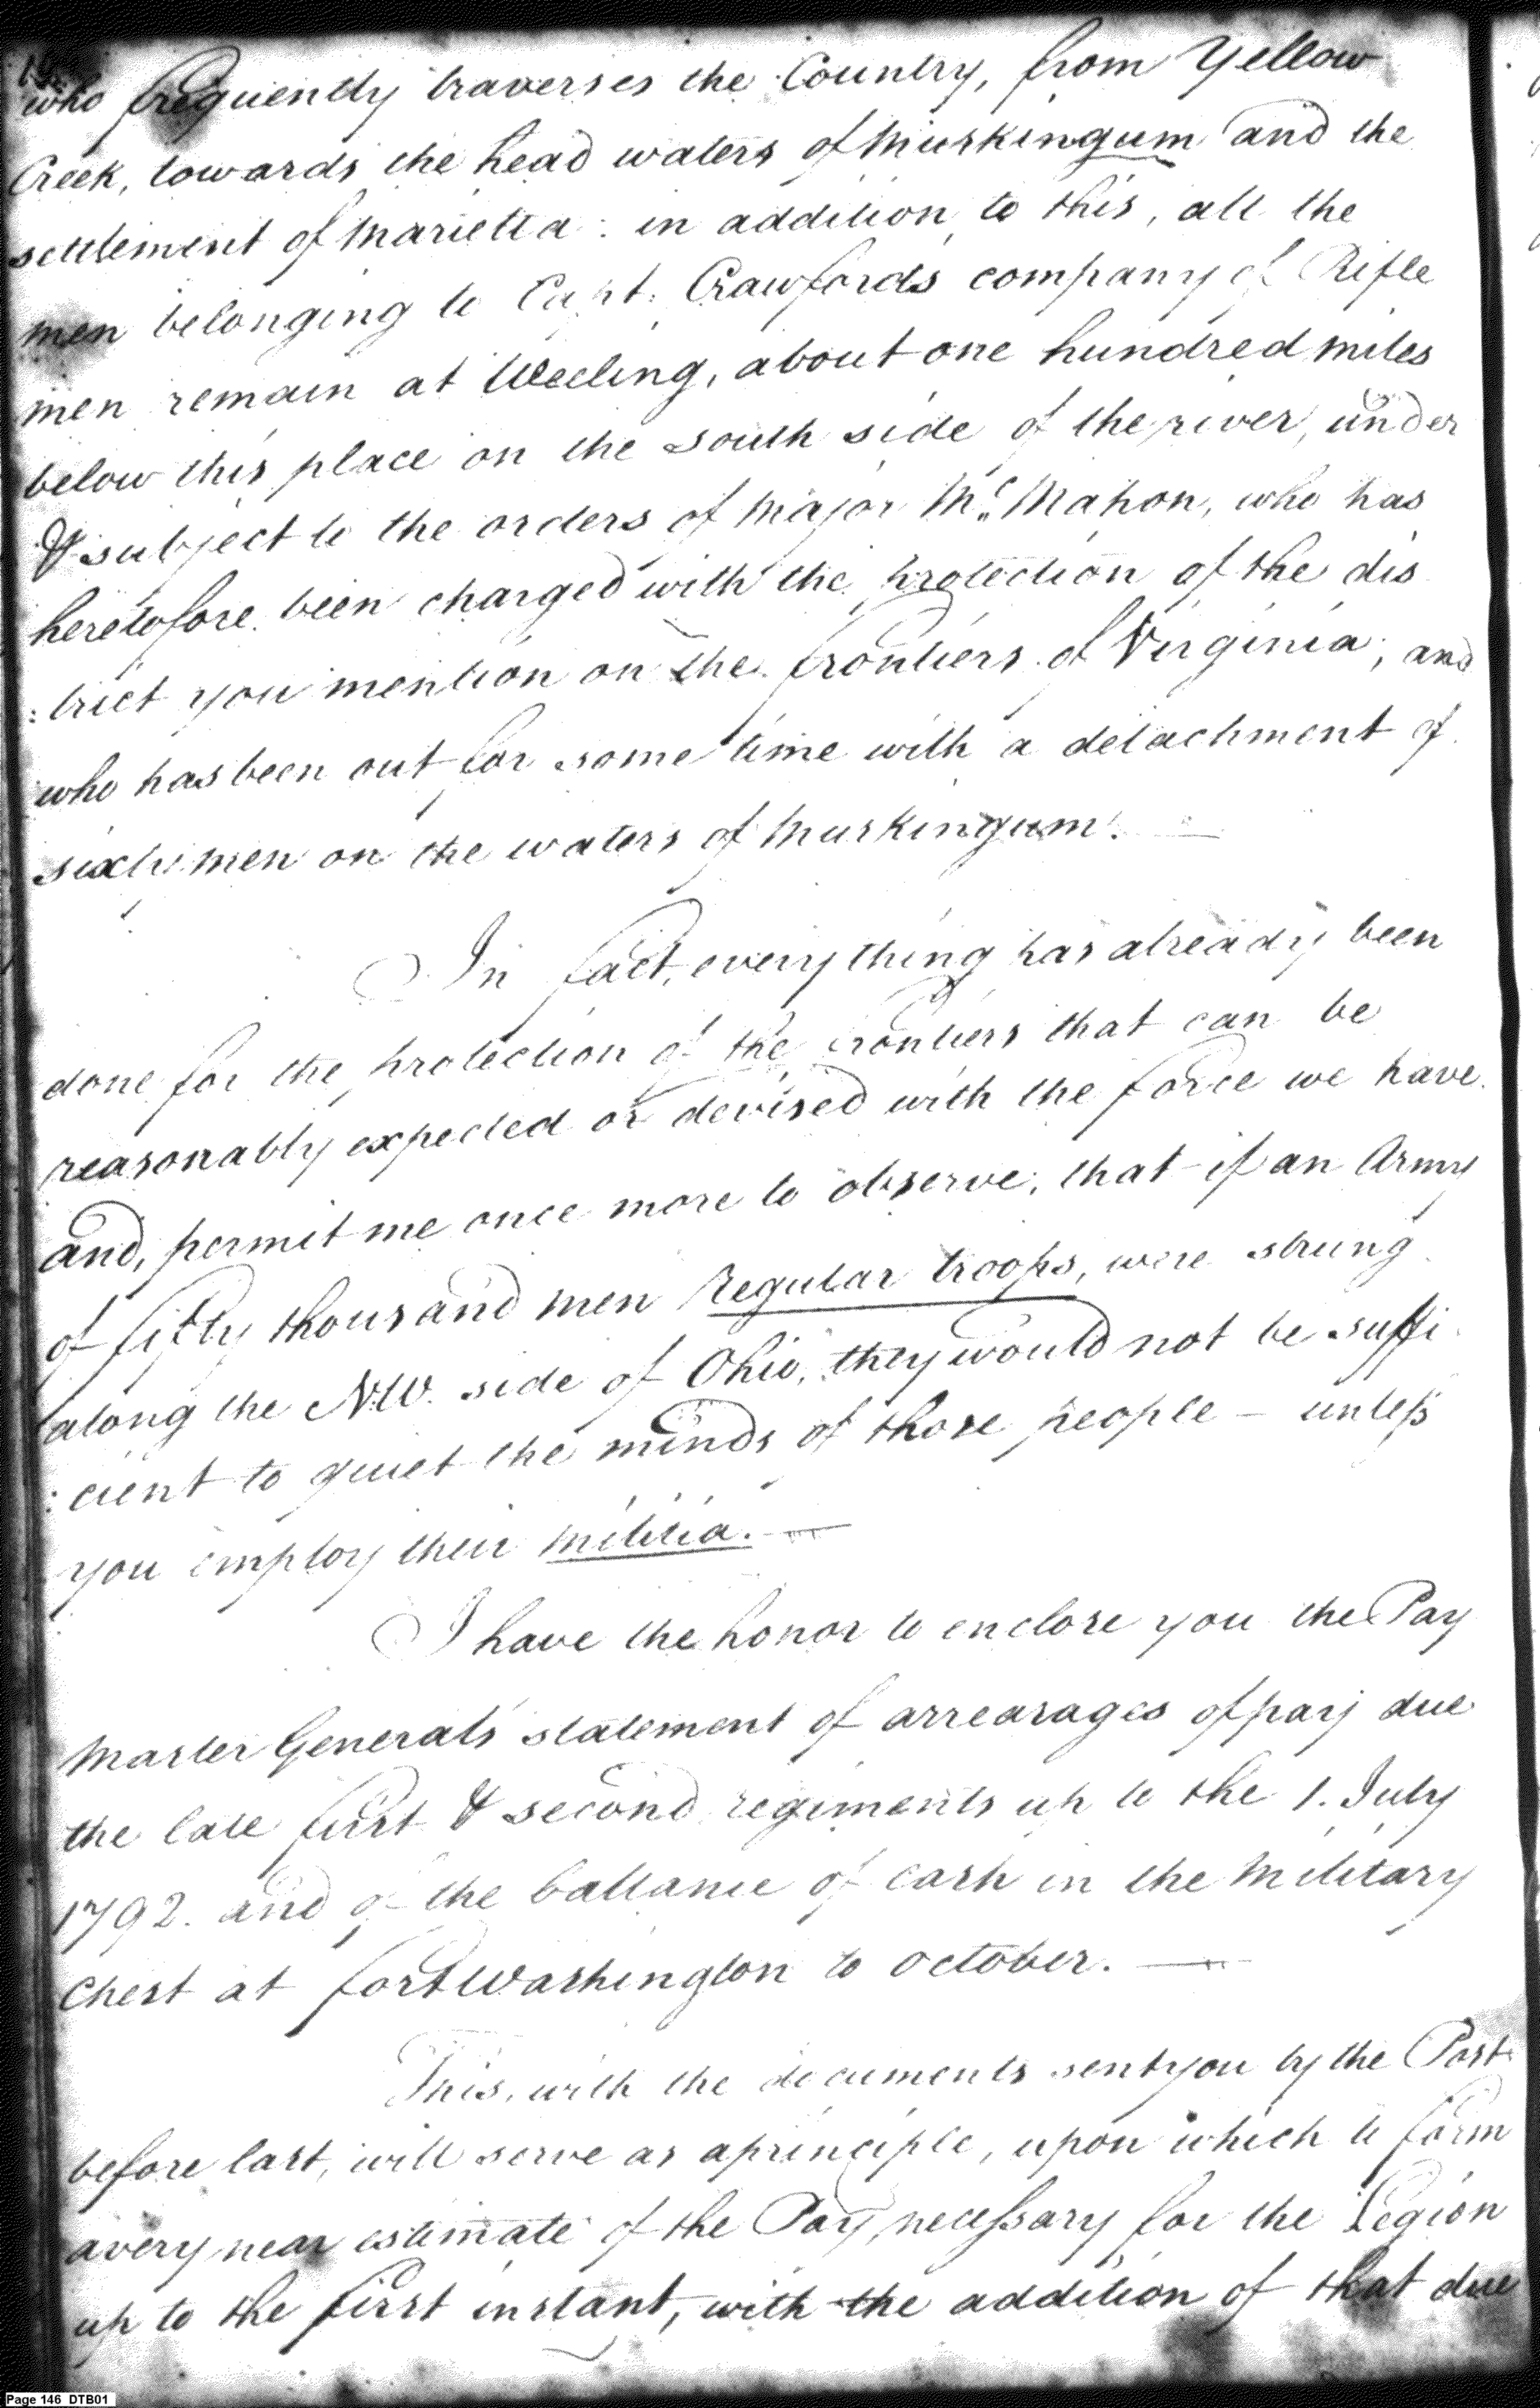 who frequently traverses the Country, from Yellow
Creek, towards the head waters of Muskingum and the
settlement of Marietta: in addition to this, all the
men belonging to Capt: Crawfords company of Rifle
men remain at Weeling, about one hundred miles
below this place on the south side of the river, under
& subject to the orders of Major Mc. Mahon, who has
heretofore been charged with the protection of the dis
:trict you mention on the frontiers of Virginia; and
who has been out for some time with a detachment of
sixty men on the waters of Muskingum. —
In fact, every thing has already been
done for the protection of the frontiers that can be
reasonably expected or devised with the force we have
and, permit me once more to observe, that if an Army
of fifty thousand men regular troops, were strung
along the N.W. side of Ohio, they would not be suffi
:cient to quiet the minds of those people – unless
you employ their militia. —
I have the honor to enclose you the Pay
Master General's statement of arrearages of pay due
the late first & second regiments up to the 1. July
1792. and of the ballance of cash in the Military
Chest at fort Washington to october. —
This, with the documents sent you by the Post
before last, will serve as a principle, upon which to form
a very near estimate of the Pay, necessary for the Legion
up to the first instant, with the addition of that due
Page 146 DTB01